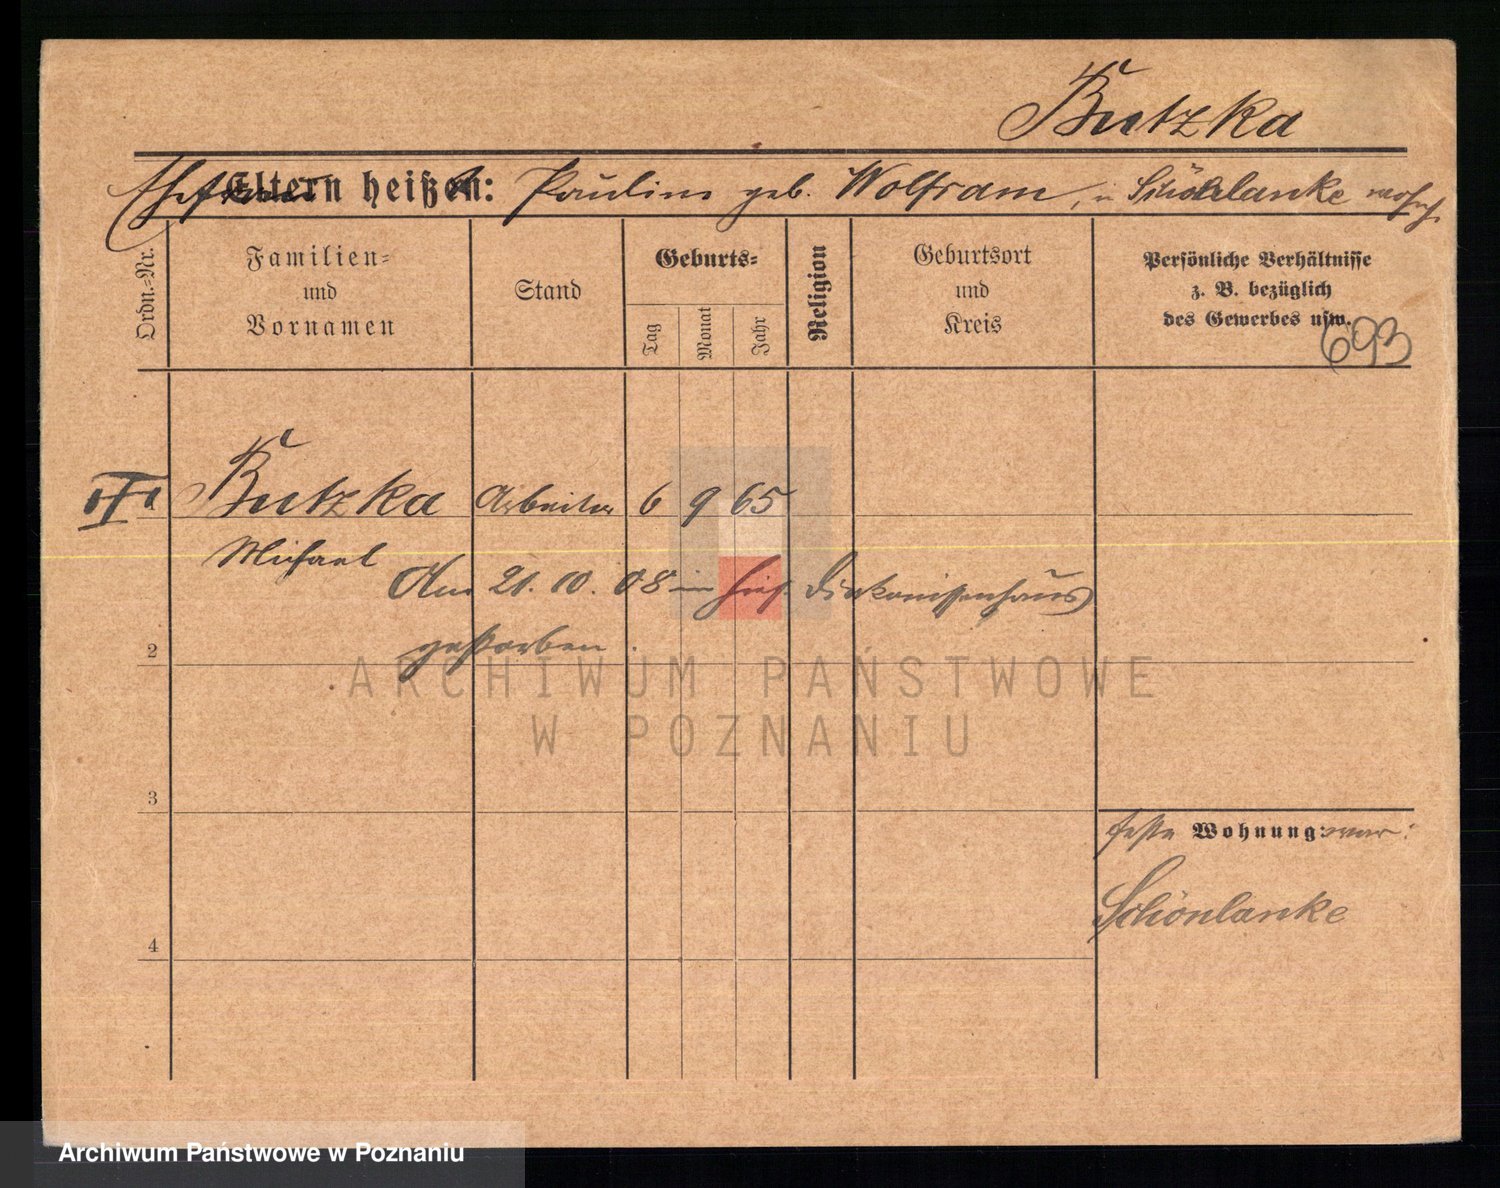 Butzka
Ehefrau Eltern heißen: Pauline geb. Wolfram, in Schönlanke wohnh.
Ordn.=Nr.
Familien=
und
Vornamen
Stand
Geburts=
Tag
Monat
Jahr
Religion
Geburtsort
und
Kreis
Persönliche Verhältnisse
z. B. bezüglich
des Gewerbes usw.
693
III Butzka Arbeiter 6 9 65
Michael
Am 21. 10. 08 im hies. Diakonissenhaus
gestorben.
2
3
4
feste Wohnung: war:
Schönlanke
ARCHIWUM PAŃSTWOWE
W POZNANIU
Archiwum Państwowe w Poznaniu